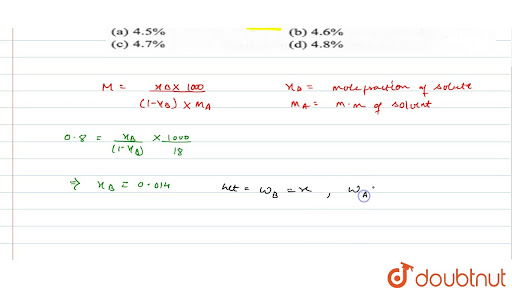 (a) 4.5% (b) 4.6%
(c) 4.7% (d) 4.8%
M = xB × 1000 / (1-xB) × MA
xB = molefraction of solute
MA = m.m of solvent
0.8 = xB / (1-xB) × 1000 / 18
⇒ xB = 0.014 let = wB = x , wA
doubtnut